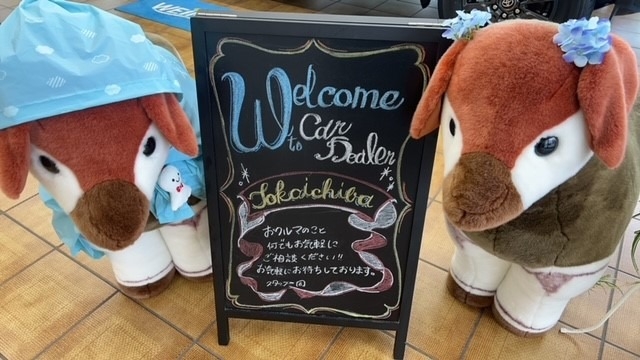 WEL
Welcome
to Car
Dealer
Tokaichiba
おクルマのこと
何でもお気軽に
ご相談ください!!
お気軽にお待ちしております。
スタッフ一同